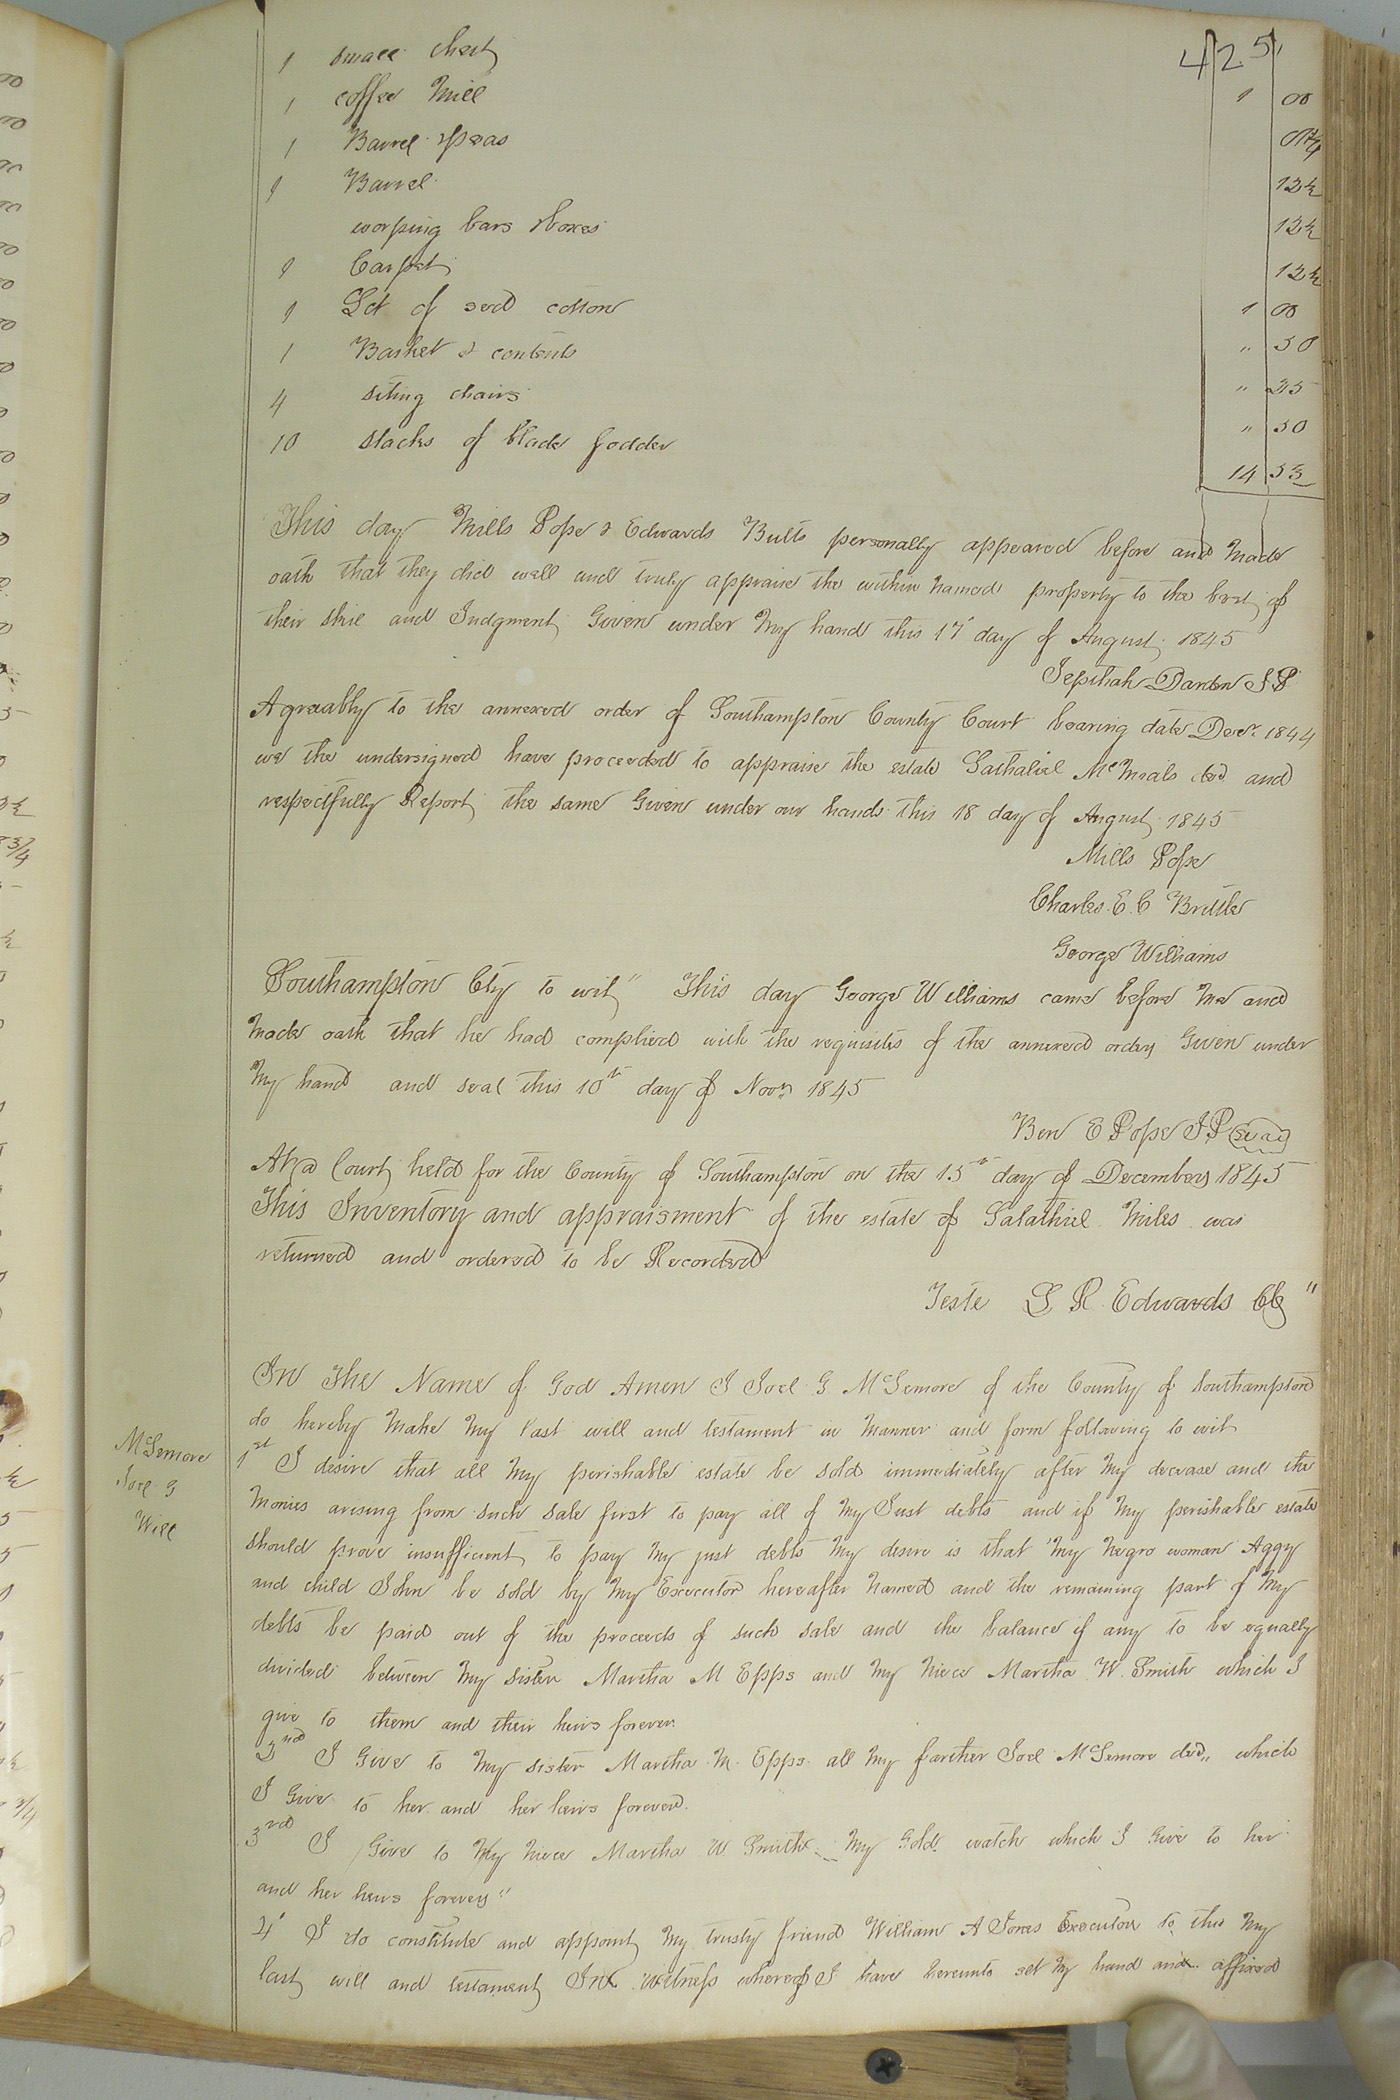 425
1 small chest
1 coffee Mill 1 00
1 Barrel & peas
1 Barrel 12½
worping bars & boxes 12½
1 Carpet 12½
1 Lot of seed cotton 1 00
1 Basket & contents " 50
4 siting chairs " 25
10 stacks of blade fodder " 50
14 53
This day Mills Pope & Edwards Butts personally appeared before and made
oath that they did well and truly appraise the within named property to the best of
their skil and Judgment Given under My hand this 17 day of August 1845
Jepthah Darden J.P.
Agreeably to the annexed order of Southampton County Court bearing date Decr. 1844
we the undersigned have proceeded to appraise the estate dcd and
respectfully Report the same Given under our hands this 18 day of August 1845
Mills Pope
Charles E. C Brittle
George Williams
Southampton Cty to wit" This day George Williams came before me and
Made oath that he had complied with the requisites of the annexed order Given under
My hand and seal this 10th day of Novr 1845
Ben E Pope J P Seal
At a Court held for the County of Southampton on the 15th day of December 1845
This Inventory and appraisment of the estate of Salathiel Miles was
returned and ordered to be Recorded
Teste L R Edwards Clk "
In The Name of God Amen I Joel G McLemore of the County of Southampton
do hereby Make My last will and testament in Manner and form following to wit
McLemore
Joel G
Will
1st I desire that all My perishable estate be sold immediately after My decease and the
Monies arising from such sale first to pay all of My Just debts and if My perishable estate
should prove insufficient to pay My just debts My desire is that My Negro woman Aggy
and child John be sold by My Executor hereafter Named and the remaining part of My
debts be paid out of the proceeds of such sale and the balance if any to be equally
divided between My sister Martha M Epps and My Niece Martha W. Smith which I
give to them and their heirs forever.
2nd I Give to My sister Martha M. Epps all My farther Joel McLemore decd,, which
I Give to her and her heirs forever.
3rd I Give to My Niece Martha W Smith My Gold watch which I Give to her
and her heirs forever"
4' I do constitute and appoint My trusty friend William A Jones Executor to this My
last will and testament In witness whereof I have hereunto set My hand and affixed